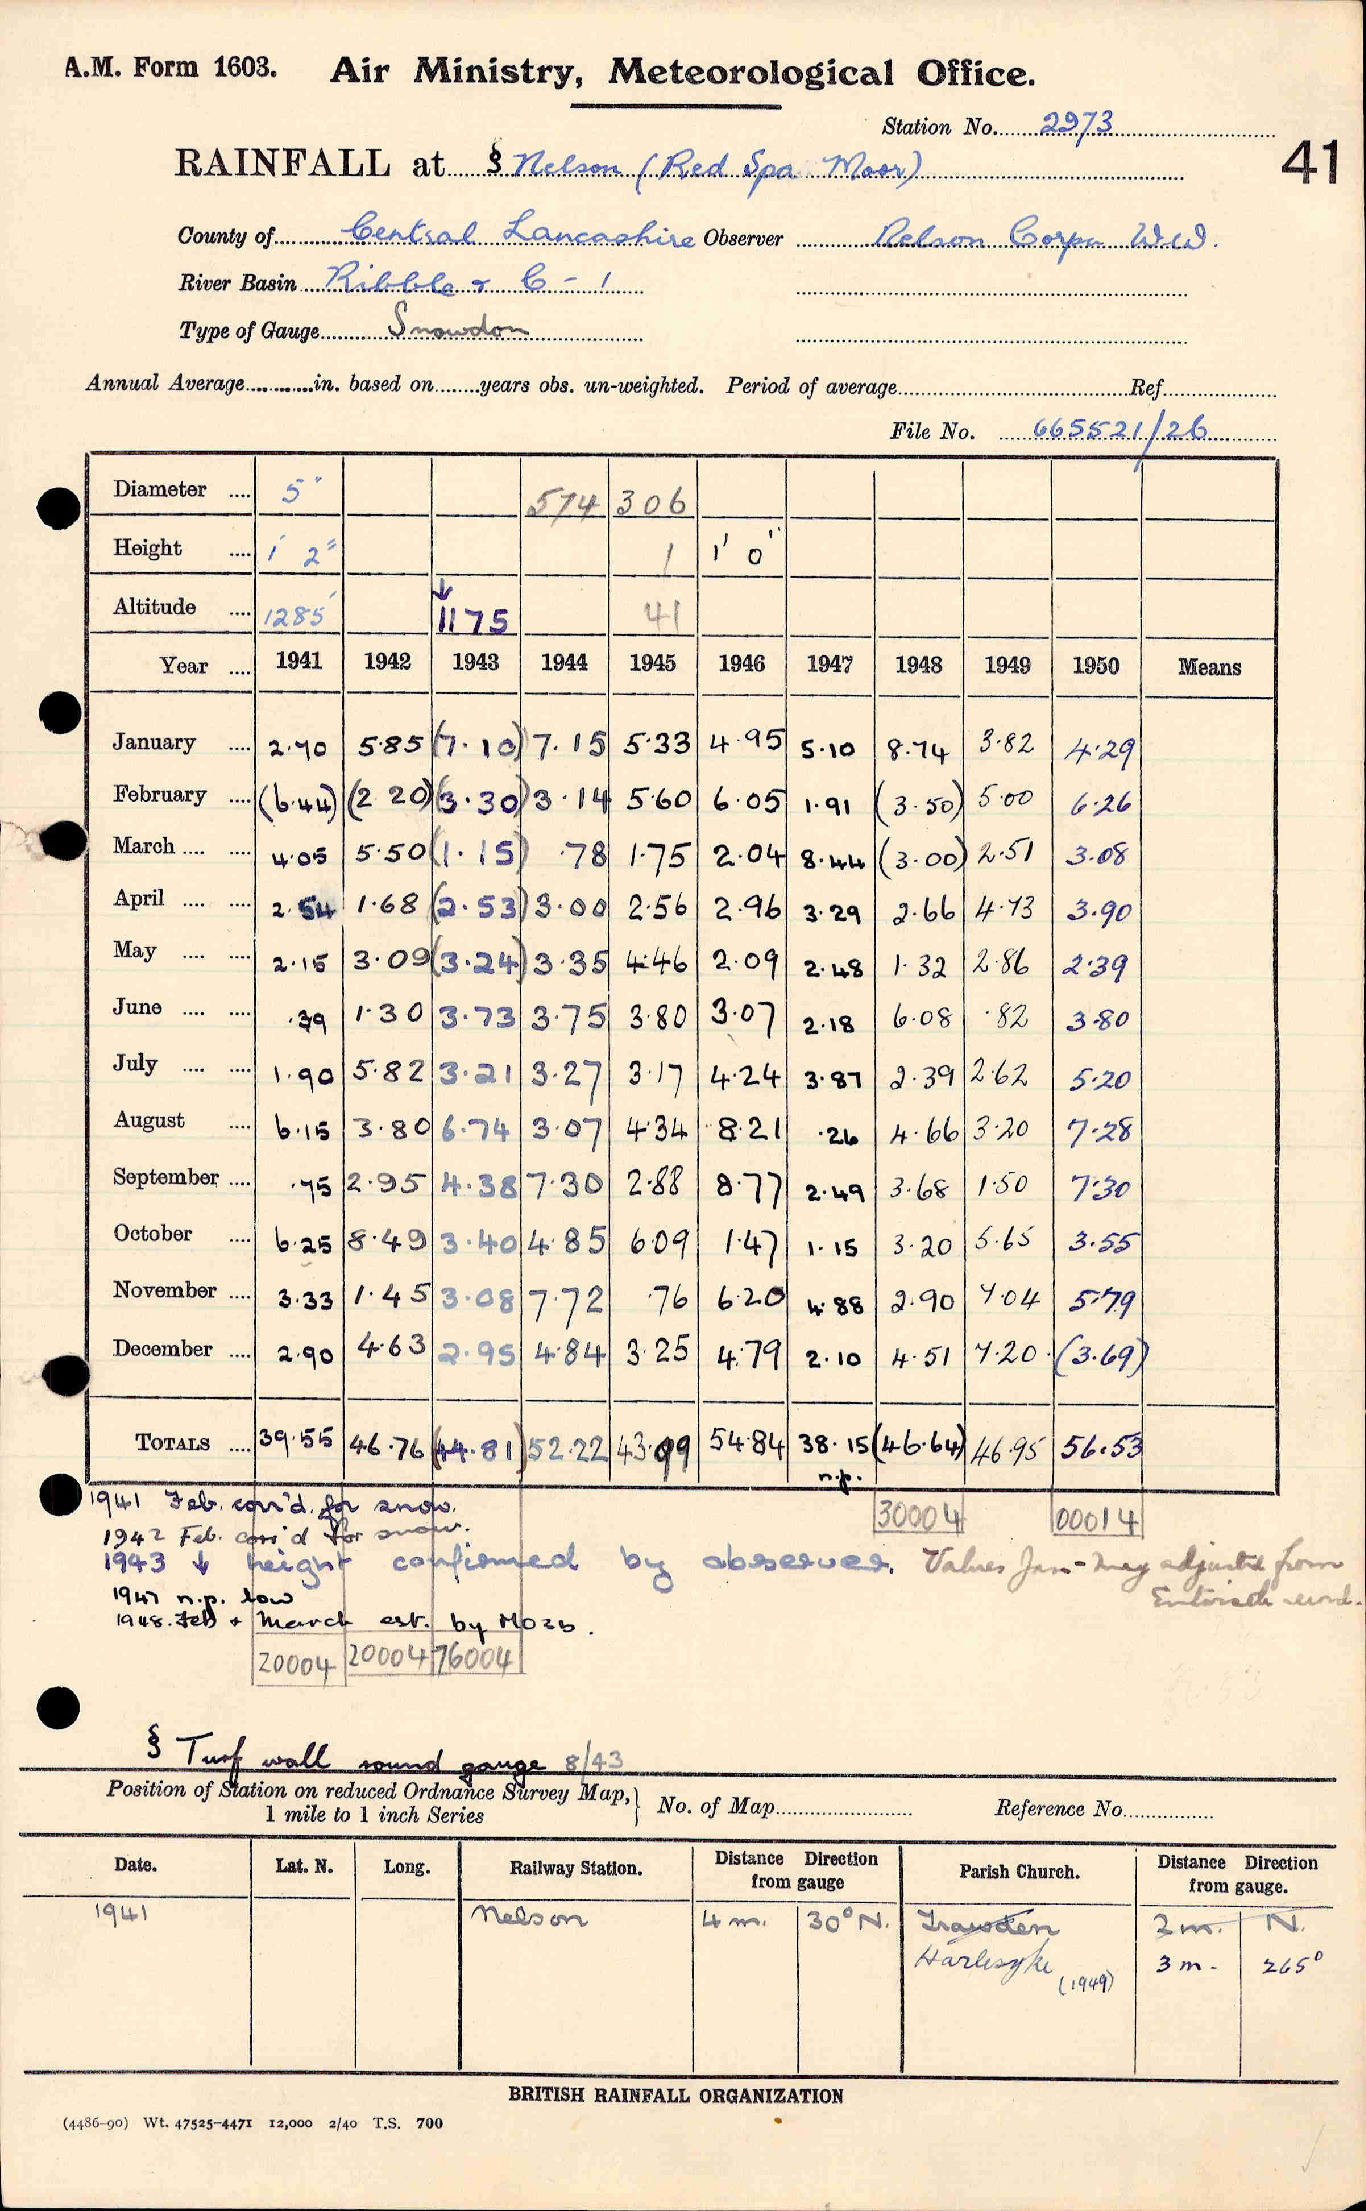 A.M. Form 1603. Air Ministry, Meteorological Office.
Station No. 2973
41
RAINFALL at § Nelson (Red Spa Moor)
County of Central Lancashire Observer Nelson Corpn W.W.
River Basin Ribble & C - 1
Type of Gauge Snowdon
Annual Average............in. based on........years obs. un-weighted. Period of average........ Ref........
File No. 665521/26
Diameter .... 5" 574 306
Height .... 1' 2" 1 1' 0"
Altitude .... 1285' ↓ 1175 41
Year .... 1941 1942 1943 1944 1945 1946 1947 1948 1949 1950 Means
January .... 2.70 5.85 (7.10) 7.15 5.33 4.95 5.10 8.74 3.82 4.29
February .... (6.44) (2 20) (3.30) 3.14 5.60 6.05 1.91 (3.50) 5.00 6.26
March .... .... 4.05 5.50 (1.15) .78 1.75 2.04 8.44 (3.00) 2.51 3.08
April .... .... 2.54 1.68 (2.53) 3.00 2.56 2.96 3.29 2.66 4.73 3.90
May .... .... 2.15 3.09 (3.24) 3.35 4.46 2.09 2.48 1.32 2.86 2.39
June .... .... .39 1.30 3.73 3.75 3.80 3.07 2.18 6.08 .82 3.80
July .... .... 1.90 5.82 3.21 3.27 3.17 4.24 3.87 2.39 2.62 5.20
August .... 6.15 3.80 6.74 3.07 4.34 8.21 .26 4.66 3.20 7.28
September .... .75 2.95 4.38 7.30 2.88 8.77 2.49 3.68 1.50 7.30
October .... 6.25 8.49 3.40 4.85 6.09 1.47 1.15 3.20 5.65 3.55
November .... 3.33 1.45 3.08 7.72 .76 6.20 4.88 2.90 7.04 5.79
December .... 2.90 4.63 2.95 4.84 3.25 4.79 2.10 4.51 7.20 (3.69)
TOTALS .... 39.55 46.76 (44.81) 52.22 43.99 54.84 38.15 (46.64) 46.95 56.53
n.p.
1941 Feb. corr'd. for snow.
30004 00014
1942 Feb. corr'd for snow.
1943 ↓ height confirmed by observer. Values Jan-May adjusted from
Entwistle record.
1947 n.p. low
1948. Feb & March est. by MO3b.
20004 20004 76004
§ Turf wall round gauge 8/43
Position of Station on reduced Ordnance Survey Map,} No. of Map........ Reference No........
1 mile to 1 inch Series
Date. Lat. N. Long. Railway Station. Distance from gauge Direction Parish Church. Distance from gauge. Direction
1941 Nelson 4 m. 30° N. Trawden 2 m. N.
Harlesyke (1949) 3 m. 265°
BRITISH RAINFALL ORGANIZATION
(4486-90) Wt. 47525-4471 12,000 2/40 T.S. 700